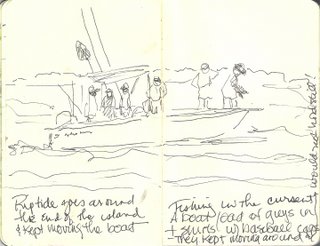 Riptide goes around
the end of the island
& kept moving the boat
Fishing in the current
A boat load of guys in
t shirts w/ baseball caps
They kept moving around &
would not hold still!